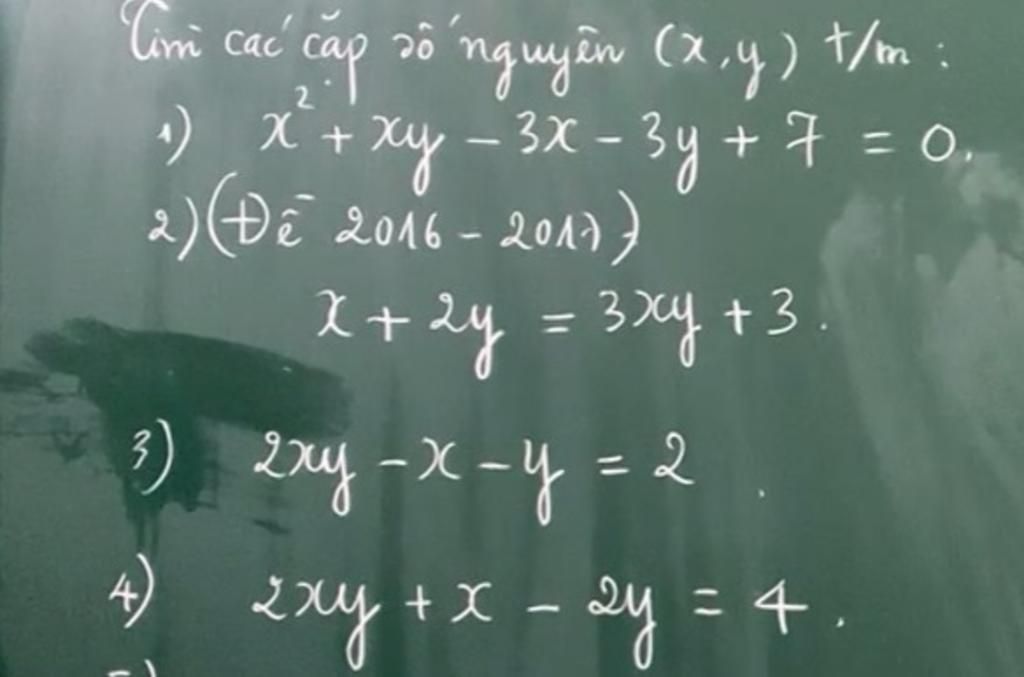 Tìm các cặp số nguyên (x,y) t/m :
1) x² + xy - 3x - 3y + 7 = 0.
2) (Đề 2016 - 2017)
x + 2y = 3xy + 3.
3) 2xy - x - y = 2.
4) 2xy + x - 2y = 4.